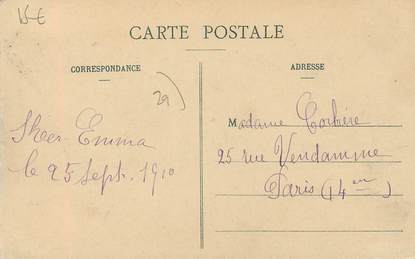 15€
CARTE POSTALE
CORRESPONDANCE
ADRESSE
29)
Skeer-Emma
le 25 Sept. 1910
Madame Corbière
25 rue Vendamme
Paris (14em)